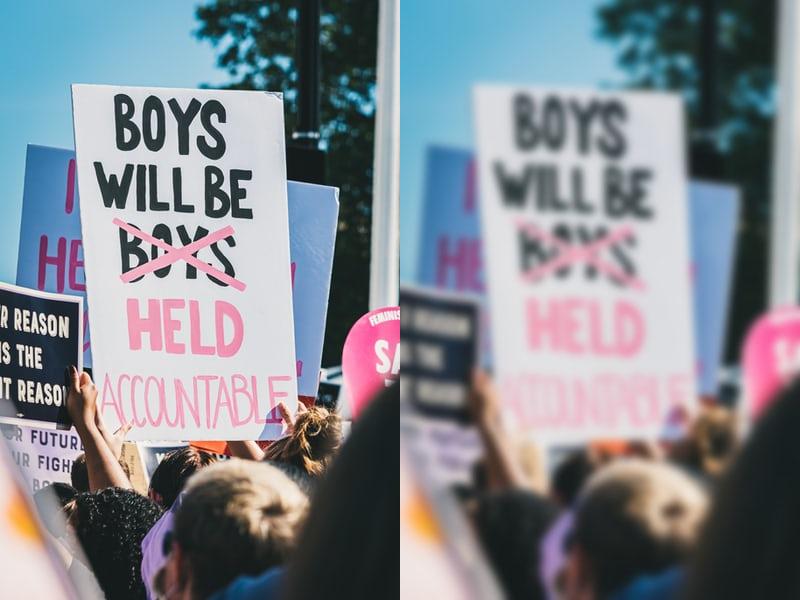 BOYS
WILL BE
BOYS
HELD
ACCOUNTABLE
HE
R REASON
IS THE
T REASON
R FUTURE
UR FIGHT
FEMINIS
SA
BOYS
WILL BE
BOYS
HELD
ACCOUNTABLE
HE
REASON
IS THE
REASON